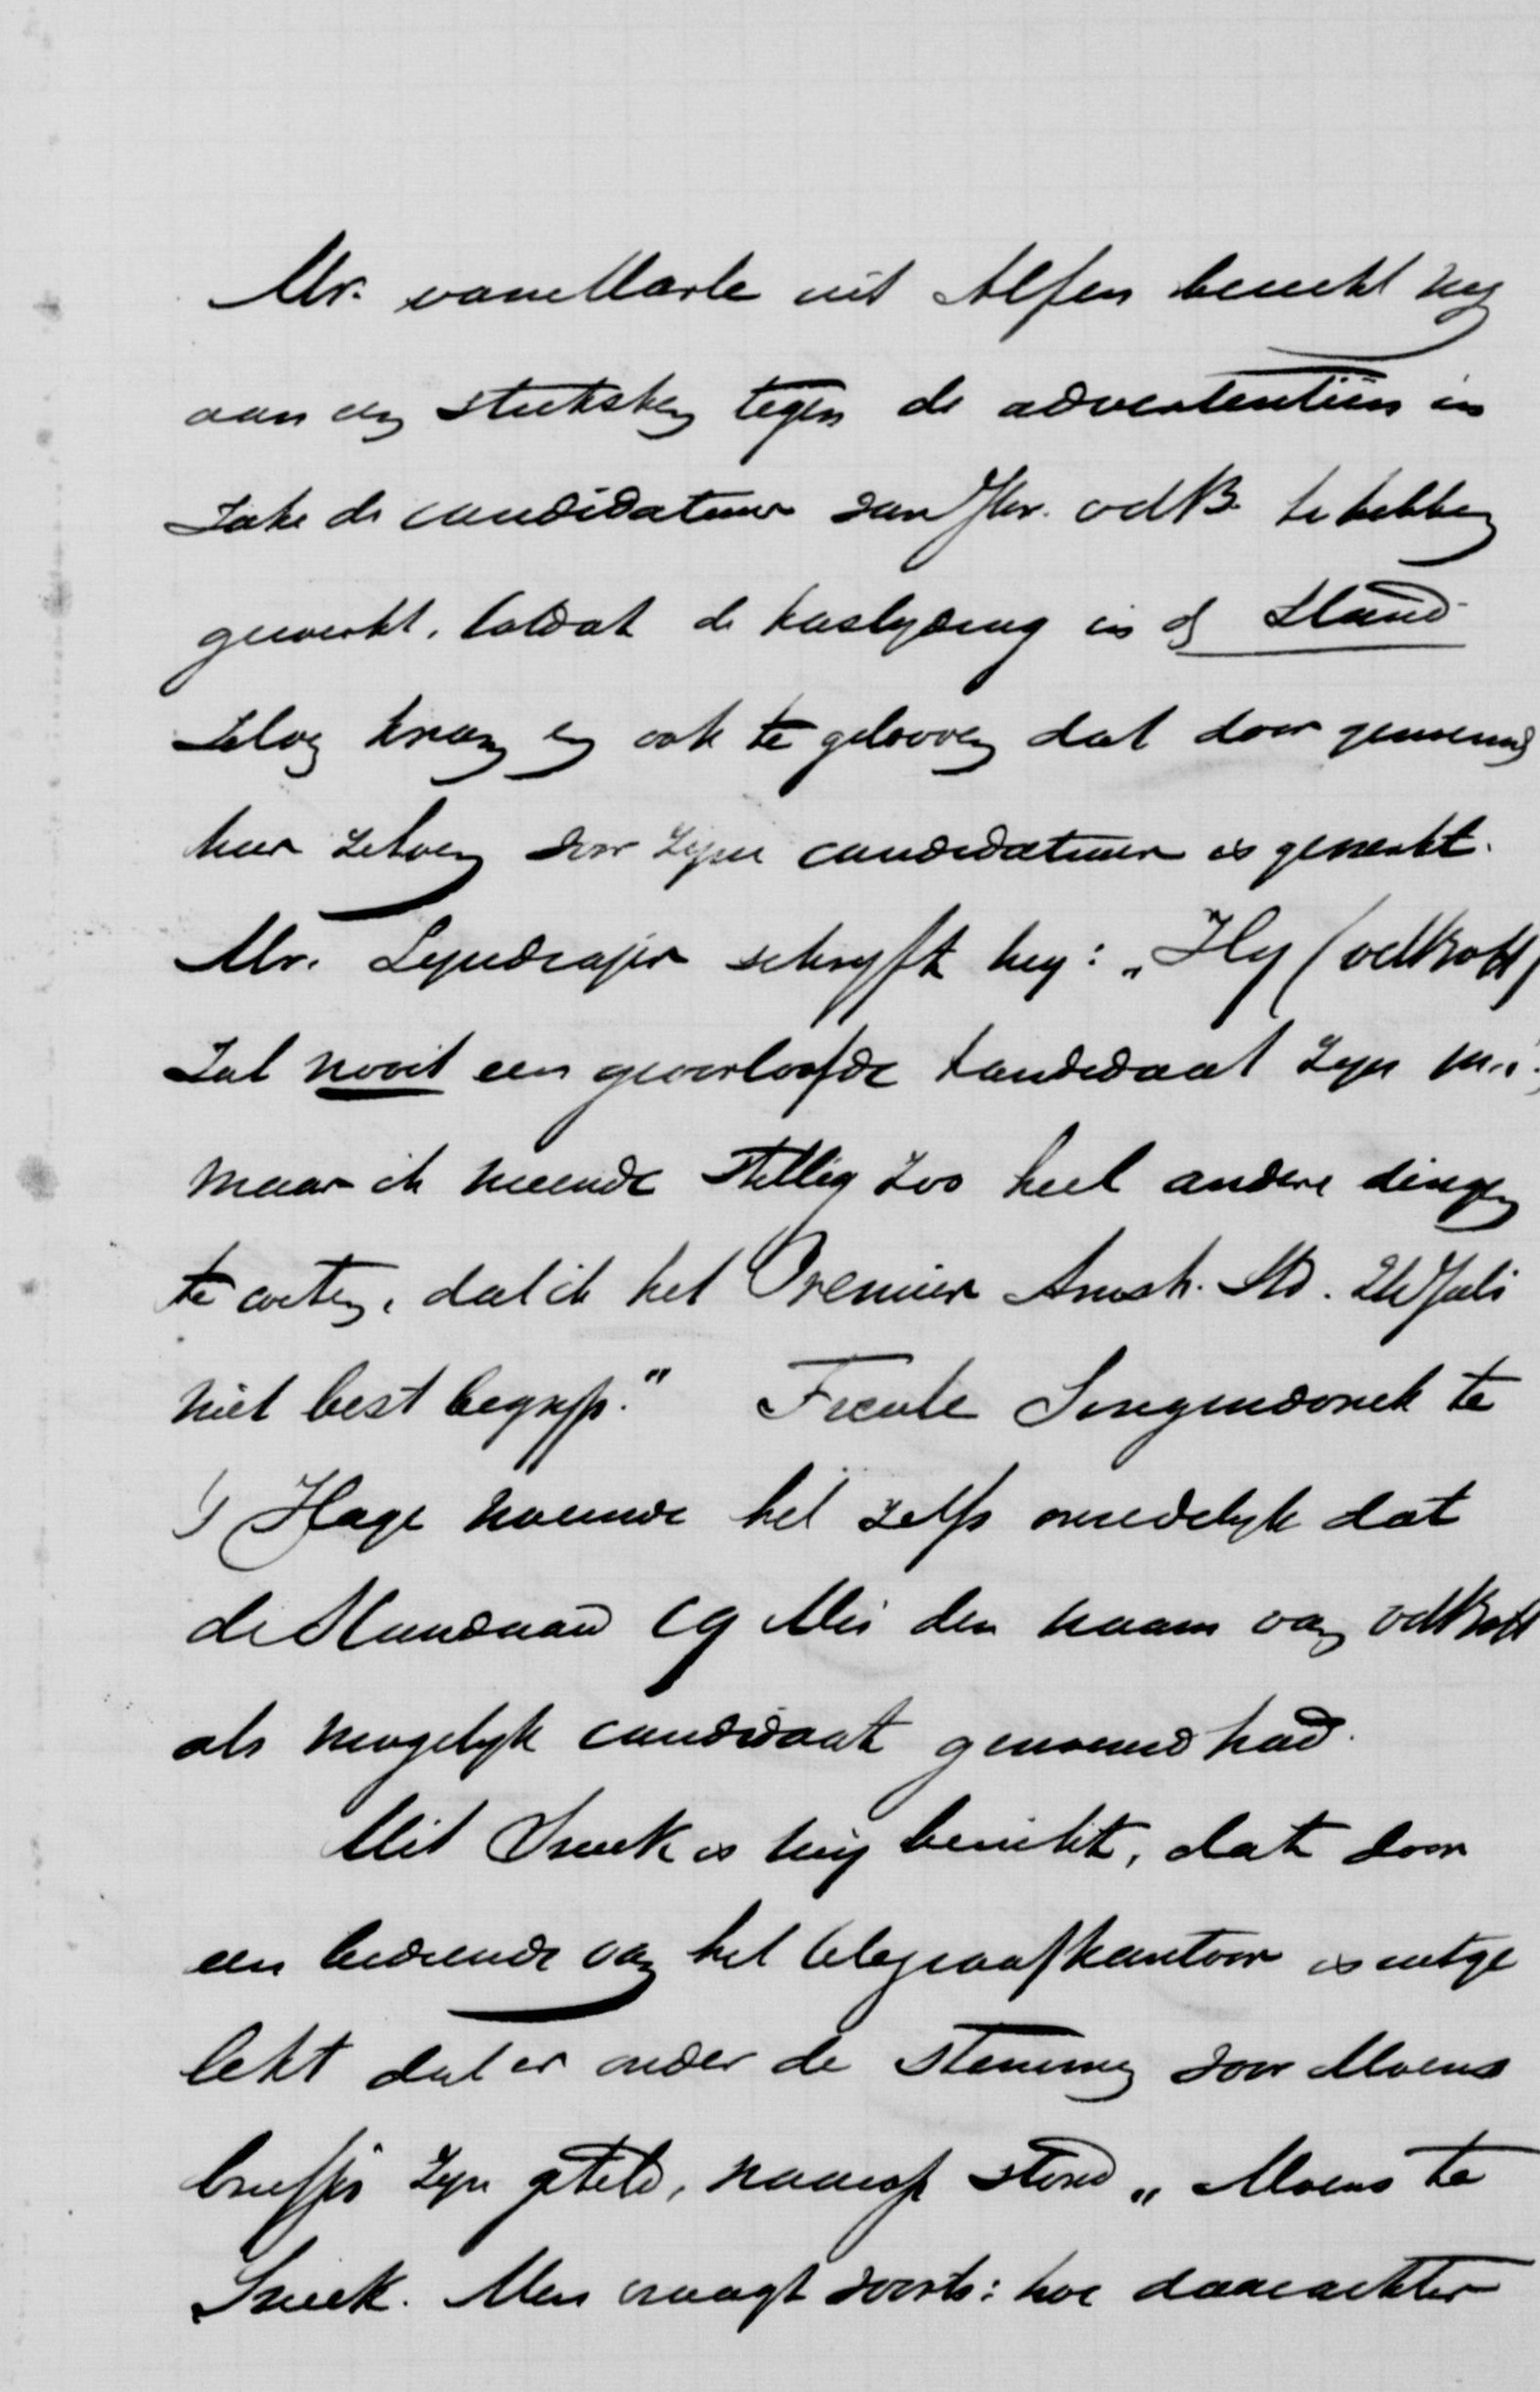 Mr. van Marle uit Alfen bericht mij
aan een stuksken tegen de advertentiën in
zake de candidatuur van Jhr. vdB. te hebben
gewerkt, totdat de bestrijding in de Stand
zelve kwam en ook te gelooven dat door genoemd
heer zelven voor zijne candidatuur is gewerkt.
Mr. Lijndrajer schrijft mij: „Hij (vdKodd)
zal nooit een geoorloofde kandidaat zijn m.i.
maar ik meende stellig zoo heel andere dingen
te weten, dat ik het Premier Amst. Std. 26 Juli
niet best begrijp." Freule Singendonck te
's Hage noemde het zelfs onredelijk dat
de Standaard  den naam van
als mogelijk candidaat genoemd had.
Uit Sneek is mij bericht, dat door
een bediende van het telegraafkantoor is uitge
lekt dat er onder de stemming voor Moens
briefjes zijn geteld, waarop stond „Moens te
Sneek. Men vraagt voorts: hoe daarachter